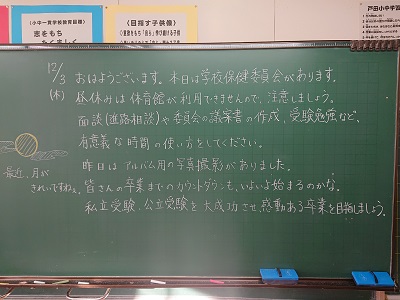 〈小中一貫学校教育目標〉
志をもち
〈目指す子供像〉
戸田小中学習
12/3
(木)
おはようございます。本日は学校保健委員会があります。
昼休みは体育館が利用できませんので、注意しましょう。
面談(進路相談)や委員会の議案書の作成、受験勉強など、
有意義な時間の使い方をしてください。
昨日はアルバム用の写真撮影がありました。
皆さんの卒業までのカウントダウンも、いよいよ始まるのかな。
私立受験、公立受験を大成功させ、感動ある卒業を目指しましょう。
最近、月が
きれいですねぇ。